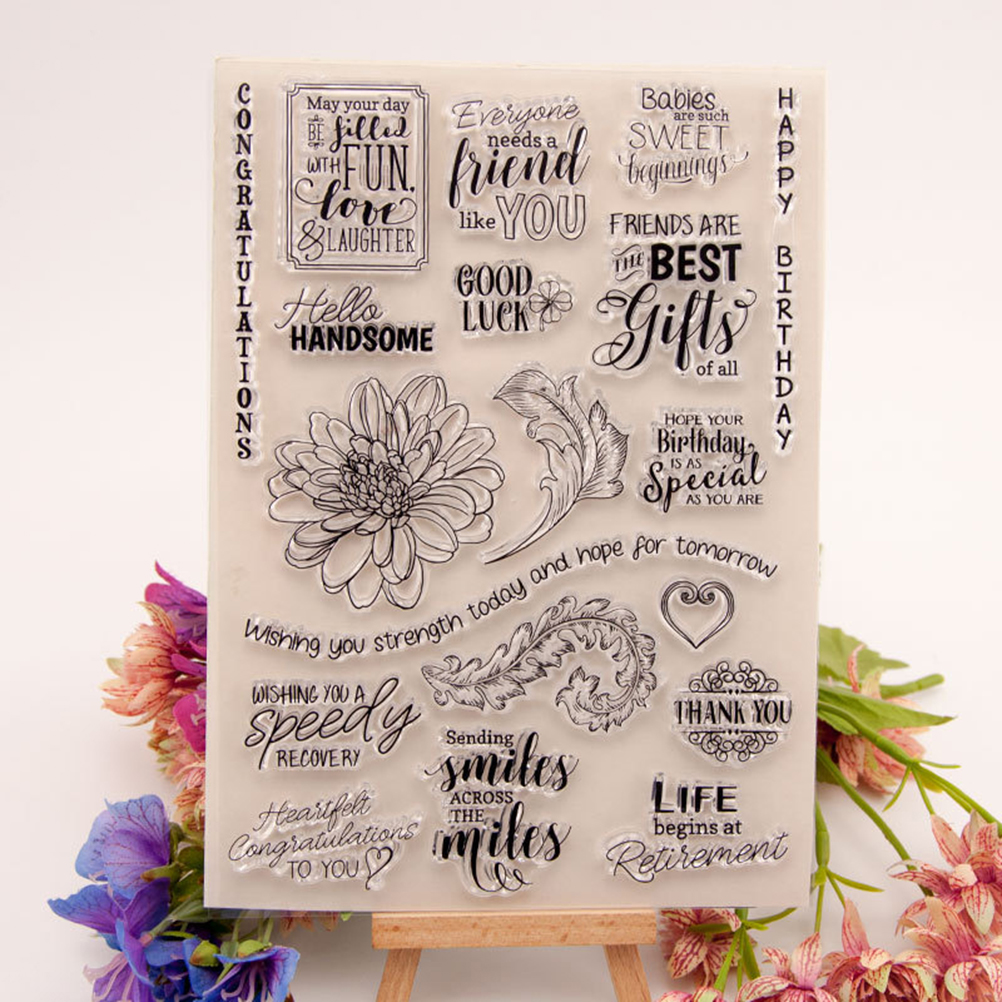 CONGRATULATIONS
May your day
BE filled
WITH FUN,
love
& LAUGHTER
Everyone
needs a
friend
like YOU
Babies
are such
SWEET
beginnings
HAPPY BIRTHDAY
FRIENDS ARE
THE BEST
Gifts
of all
GOOD
LUCK
Hello
HANDSOME
HOPE YOUR
Birthday
IS AS
Special
AS YOU ARE
Wishing you strength today and hope for tomorrow
WISHING YOU A
speedy
RECOVERY
THANK YOU
Sending
smiles
ACROSS
THE
miles
Heartfelt
Congratulations
TO YOU
LIFE
begins at
Retirement